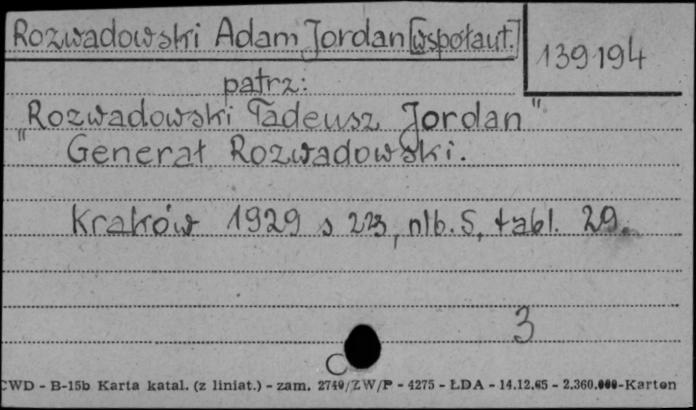 Rozwadowski Adam Jordan [współaut.]
139194
patrz:
"Rozwadowski Tadeusz Jordan"
" Generał Rozwadowski.
Kraków 1929 s 223, nlb. 5, tabl. 29.
3
C
CWD - B-15b Karta katal. (z liniat.) - zam. 2740/ZW/P - 4275 - ŁDA - 14.12.65 - 2.360.000-Karton